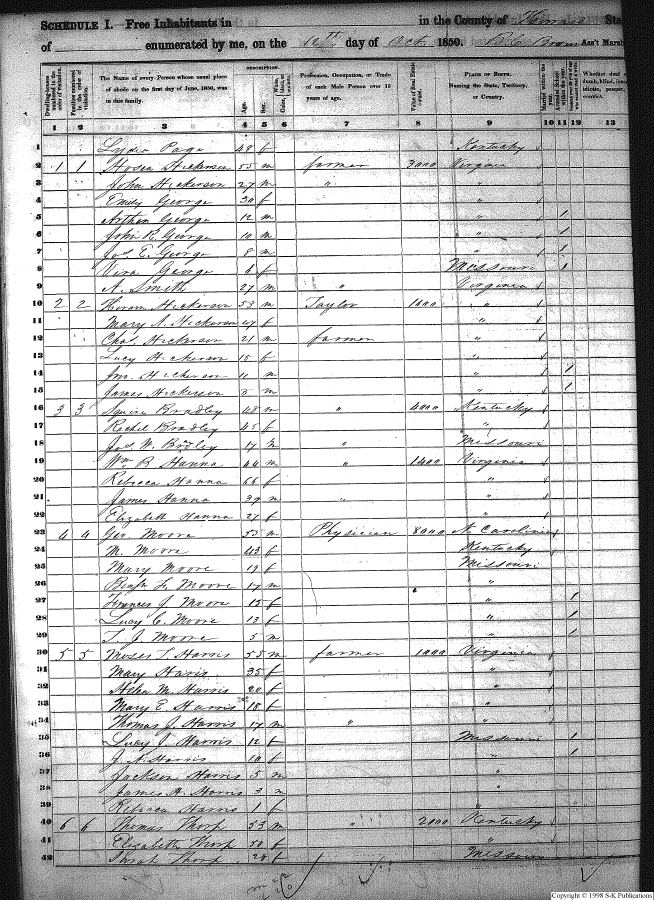 SCHEDULE I. Free Inhabitants in in the County of State
of enumerated by me, on the 12th day of Oct 1850. Ass't Marshal
DESCRIPTION.
Dwelling-houses numbered in the order of visitation.
Families numbered in the order of visitation.
The Name of every Person whose usual place of abode on the first day of June, 1850, was in this family.
Age.
Sex.
White, black, or mulatto.
Color,
Profession, Occupation, or Trade of each Male Person over 15 years of age.
Value of Real Estate owned.
PLACE OF BIRTH. Naming the State, Territory, or Country.
Married within the year.
Attended School within the year.
Whether deaf and
1 2 3 4 5 6 7 8 9 10 11 12 13
1 Lydia Page 48 f Kentucky
2 1 1 Hosea Hickerson 55 m farmer 3000 Virginia
3 John Hickerson 27 m " "
4 Emily George 30 f "
5 George 12 m " 1
6 John R. George 10 m " 1
7 Jas E. George 8 m " 1
8 George 6 f Missouri 1
9 A. Smith 27 m " Virginia
10 2 2 Hiram Hickerson 53 m Taylor 1000 "
11 Mary A. Hickerson 47 f "
12 Chas. Hickerson 21 m farmer "
13 Lucy Hickerson 15 f "
14 Jno. Hickerson 11 m " 1
15 James Hickerson m " 1
16 3 3 Squire Bradley 48 m " 4000 Kentucky
17 Rachel Bradley 45 f "
18 Jas W. 17 m " Missouri
19 Wm B. Hanna 44 m " 1400 Virginia
20 Rebecca Hanna 66 f "
21 James Hanna 39 m " "
22 Elizabeth Hanna 27 f "
23 4 4 Geo. Moore 53 m Physician 8000 N Carolina
24 M. Moore 43 f Kentucky
25 Mary Moore 19 f Missouri
26 Benj. F. Moore 17 m "
27 Frances J. Moore 15 f " 1
28 Lucy C. Moore 13 f " 1
29 T. J. Moore 5 m " 1
30 5 5 Moses T. Harris 55 m farmer 1000 Virginia
31 Mary Harris 35 f "
32 M. Harris 20 f "
33 Mary E. Harris 18 f "
34 Thomas J. Harris 17 m " "
35 Lucy J. Harris 12 f Missouri 1
36 Harris 10 f " 1
37 Jackson Harris 5 m "
38 James H. Harris 3 m "
39 Rebecca Harris 1 f "
40 6 6 Thomas Thorp 53 m " 2000 Kentucky
41 Elizabeth Thorp 50 f "
42 Sarah Thorp 20 f Missouri
Copyright © 1998 S-K Publications